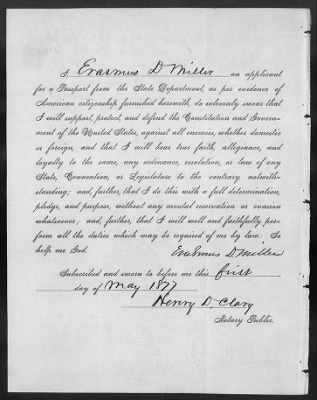 I, Erasmus D Miller an applicant
for a Passport from the State Department, as per evidence of
American citizenship furnished herewith, do solemnly swear that
I will support, protect, and defend the Constitution and Govern-
ment of the United States, against all enemies, whether domestic
or foreign, and that I will bear true faith, allegiance, and
loyalty to the same, any ordinance, resolution, or law of any
State, Convention, or Legislature to the contrary notwith-
standing; and, further, that I do this with a full determination,
pledge, and purpose, without any mental reservation or evasion
whatsoever; and, further, that I will well and faithfully per-
form all the duties which may be required of me by law: So
help me God.
Erasmus D. Miller
Subscribed and sworn to before me this first
day of May 1877
Henry D. Clary
Notary Public.